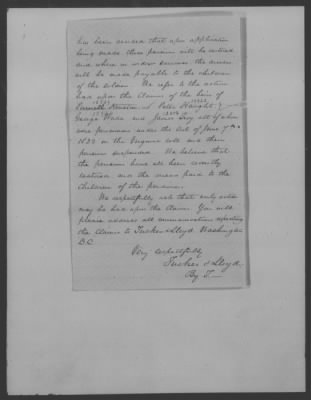 has been issued that upon application
being made these pensions will be restored
and where no widow survives the arrears
will be made payable to the children
of the soldier. We refer to the action
had upon the Claims of the heirs of
Peter Haight
George Wade and all of whom
were pensioners under the Act of June 7th
1832 in the Brigade rolls and their
pensions suspended. We believe that
the pensions have all been recently
restored and the arrears paid to the
Children of the pensioners.
We respectfully ask that early action
may be had upon the Claim. You will
please address all communications respecting
the Claims to Tucker & Lloyd Washington
D.C.
Very respectfully
Tucker & Lloyd
By T—